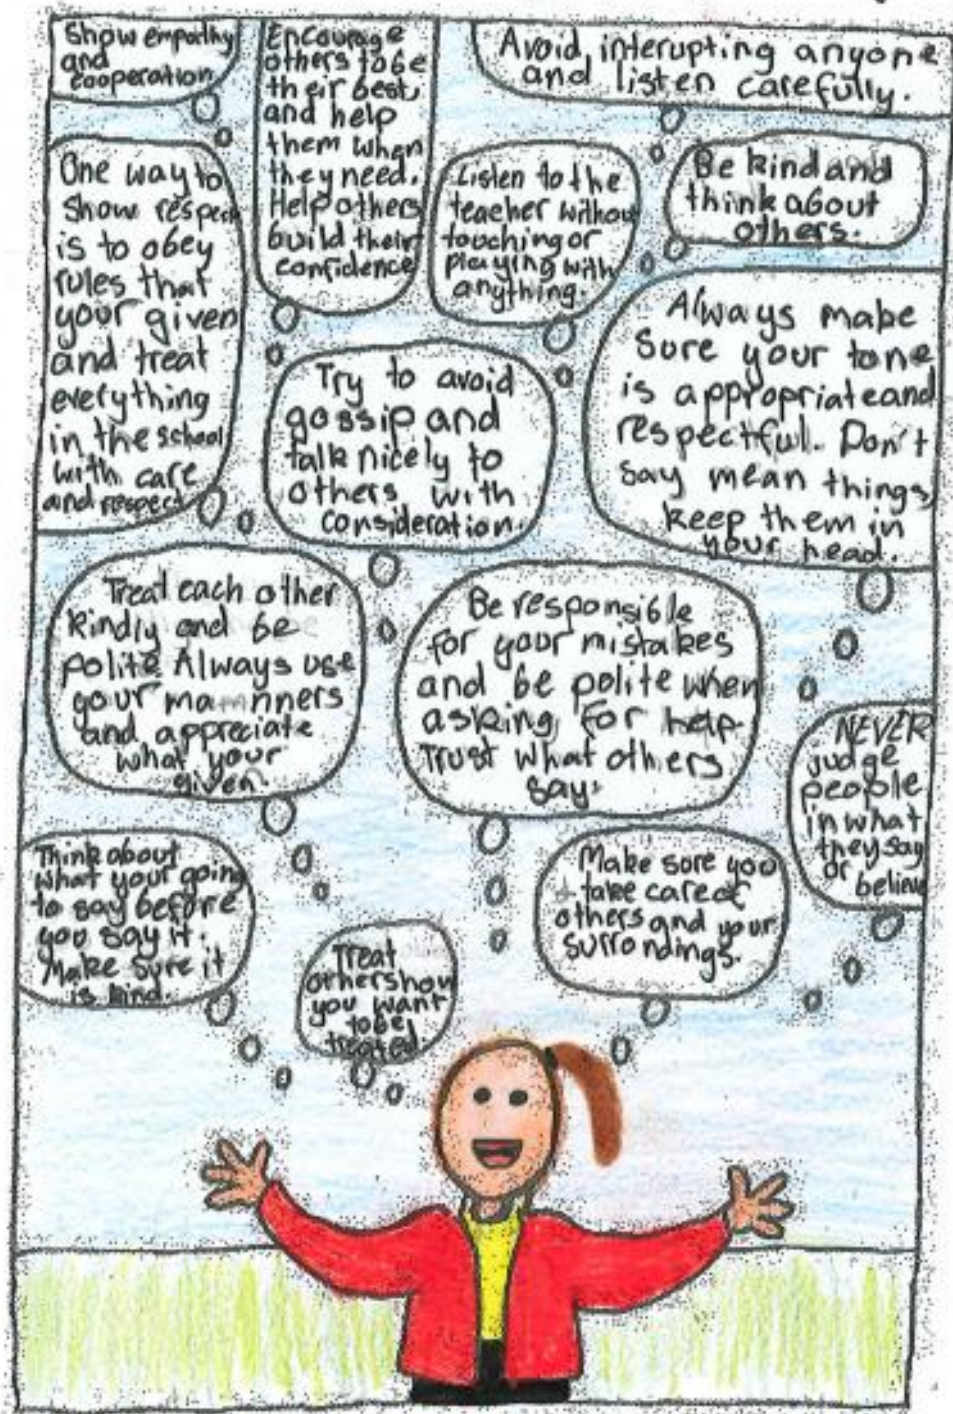 Show empathy
and
cooperation
Encourage
others to be
their best,
and help
them when
they need.
Help others
build their
confidence
Avoid interupting anyone
and listen carefully.
One way to
show respect
is to obey
rules that
your given
and treat
everything
in the school
with care
and respect
Listen to the
teacher without
touching or
playing with
anything.
Be kind and
think about
others.
Try to avoid
gossip and
talk nicely to
others with
consideration.
Always make
sure your tone
is appropriate and
respectful. Don't
say mean things,
keep them in
your head.
Treat each other
kindly and be
polite Always use
your mannners
and appreciate
what your
given.
Be responsible
for your mistakes
and be polite when
asking for help
Trust what others
say.
NEVER
judge
people
in what
they say
or believe
Think about
what your going
to say before
you say it.
Make sure it
is kind.
Treat
others how
you want
to be
treated.
Make sure you
take care of
others and your
surrondings.